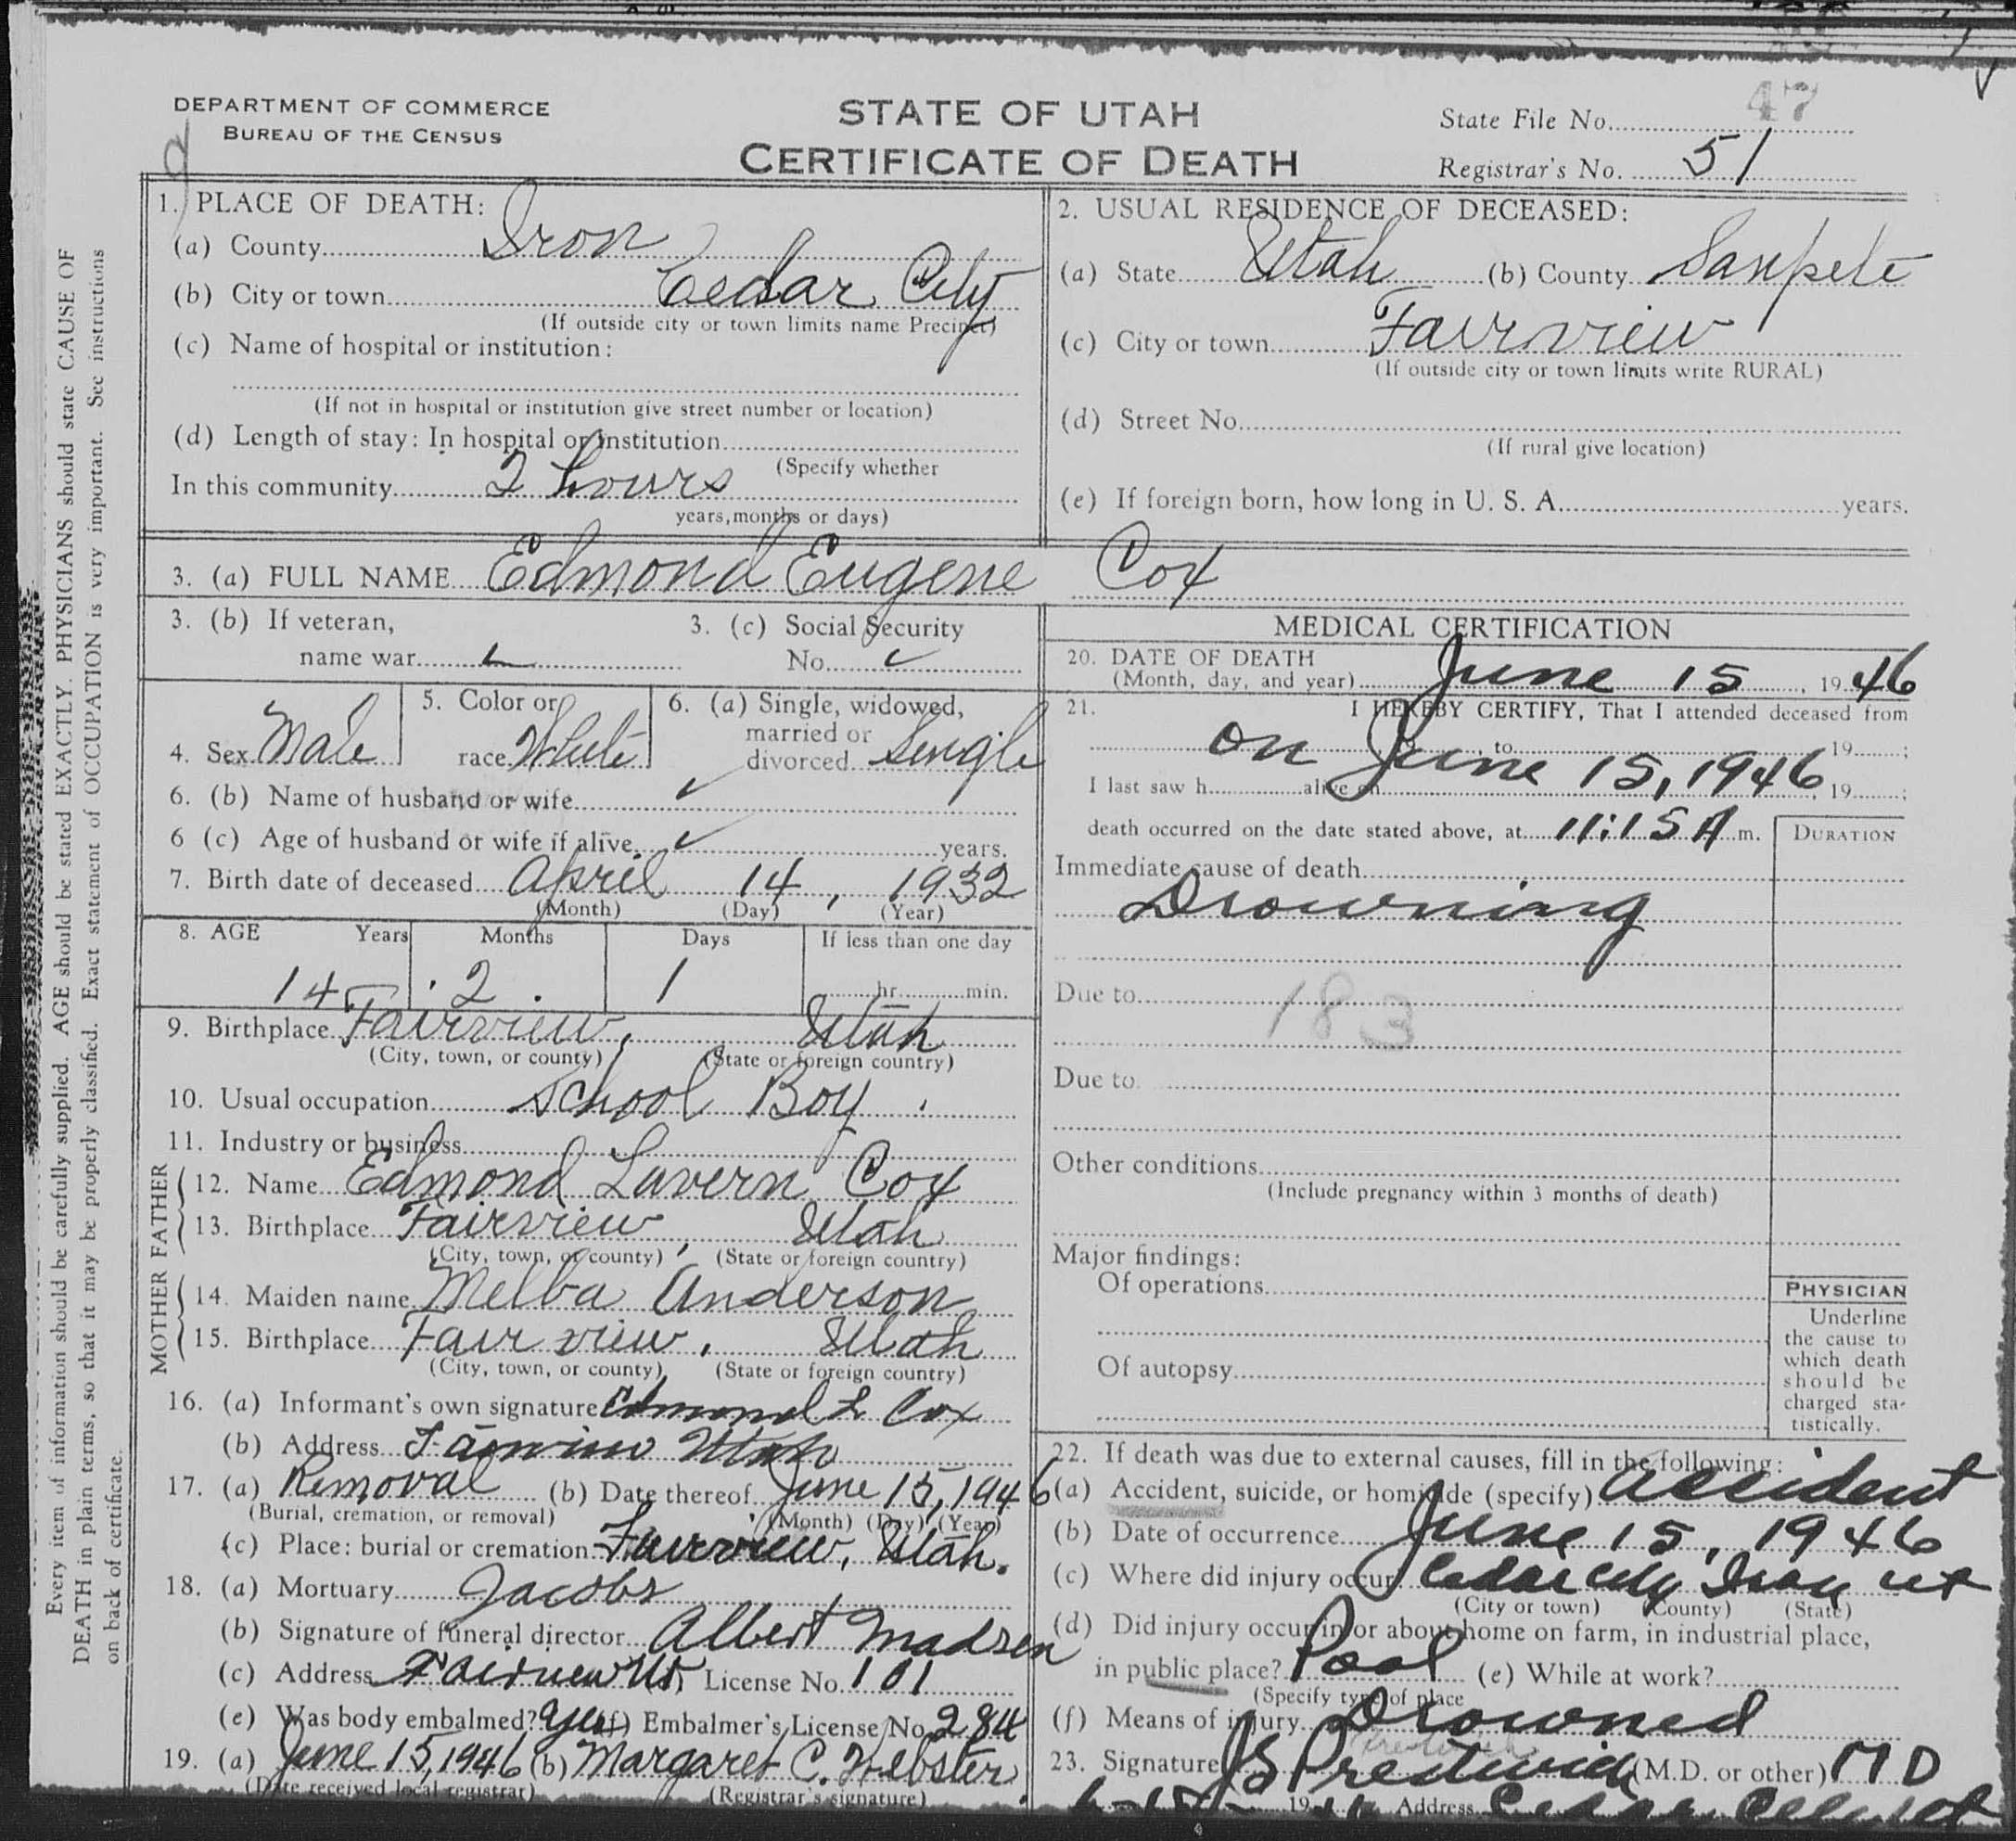 DEPARTMENT OF COMMERCE
BUREAU OF THE CENSUS
STATE OF UTAH
CERTIFICATE OF DEATH
State File No. 47
Registrar's No. 51
Every item of information should be carefully supplied. AGE should be stated EXACTLY. PHYSICIANS should state CAUSE OF
DEATH in plain terms, so that it may be properly classified. Exact statement of OCCUPATION is very important. See instructions
on back of certificate.
1. PLACE OF DEATH:
(a) County Iron
(b) City or town Cedar City
(If outside city or town limits name Precinct)
(c) Name of hospital or institution:
(If not in hospital or institution give street number or location)
(d) Length of stay: In hospital or institution
(Specify whether
In this community 2 hours
years, months or days)
2. USUAL RESIDENCE OF DECEASED:
(a) State Utah (b) County Sanpete
(c) City or town Fairview
(If outside city or town limits write RURAL)
(d) Street No.
(If rural give location)
(e) If foreign born, how long in U. S. A. years.
3. (a) FULL NAME Edmond Eugene Cox
3. (b) If veteran,
name war
3. (c) Social Security
No.
4. Sex Male
5. Color or
race White
6. (a) Single, widowed,
married or
divorced Single
6. (b) Name of husband or wife
6 (c) Age of husband or wife if alive years.
7. Birth date of deceased April 14, 1932
(Month) (Day) (Year)
8. AGE Years Months Days If less than one day
14 2 1 hr. min.
9. Birthplace Fairview, Utah
(City, town, or county) (State or foreign country)
10. Usual occupation School Boy
11. Industry or business
FATHER
12. Name Edmond Lavern Cox
13. Birthplace Fairview, Utah
(City, town, or county) (State or foreign country)
MOTHER
14. Maiden name Melba Anderson
15. Birthplace Fairview, Utah
(City, town, or county) (State or foreign country)
16. (a) Informant's own signature Edmond L Cox
(b) Address Fairview Utah
17. (a) Removal (b) Date thereof June 15, 1946
(Burial, cremation, or removal) (Month) (Day) (Year)
(c) Place: burial or cremation Fairview, Utah.
18. (a) Mortuary Jacobs
(b) Signature of funeral director Albert Madsen
(c) Address Fairview Ut. License No. 101
(e) Was body embalmed? Yes (f) Embalmer's License No. 284
19. (a) June 15, 1946 (b) Margaret C. Webster
(Date received local registrar) (Registrar's signature)
MEDICAL CERTIFICATION
20. DATE OF DEATH
(Month, day, and year) June 15, 1946
21. I HEREBY CERTIFY, That I attended deceased from
on June 15, 1946 , to 19 ;
I last saw h alive on , 19 ;
death occurred on the date stated above, at 11:15 A m.
DURATION
Immediate cause of death
Drowning
Due to
183
Due to
Other conditions
(Include pregnancy within 3 months of death)
Major findings:
Of operations
Of autopsy
PHYSICIAN
Underline
the cause to
which death
should be
charged sta-
tistically.
22. If death was due to external causes, fill in the following:
(a) Accident, suicide, or homicide (specify) accident
(b) Date of occurrence June 15, 1946
(c) Where did injury occur Cedar City Iron ut
(City or town) (County) (State)
(d) Did injury occur in or about home on farm, in industrial place,
in public place? Pool (e) While at work?
(Specify type of place
(f) Means of injury Drowned
23. Signature (M.D. or other) M D
19 Address Cedar City Ut